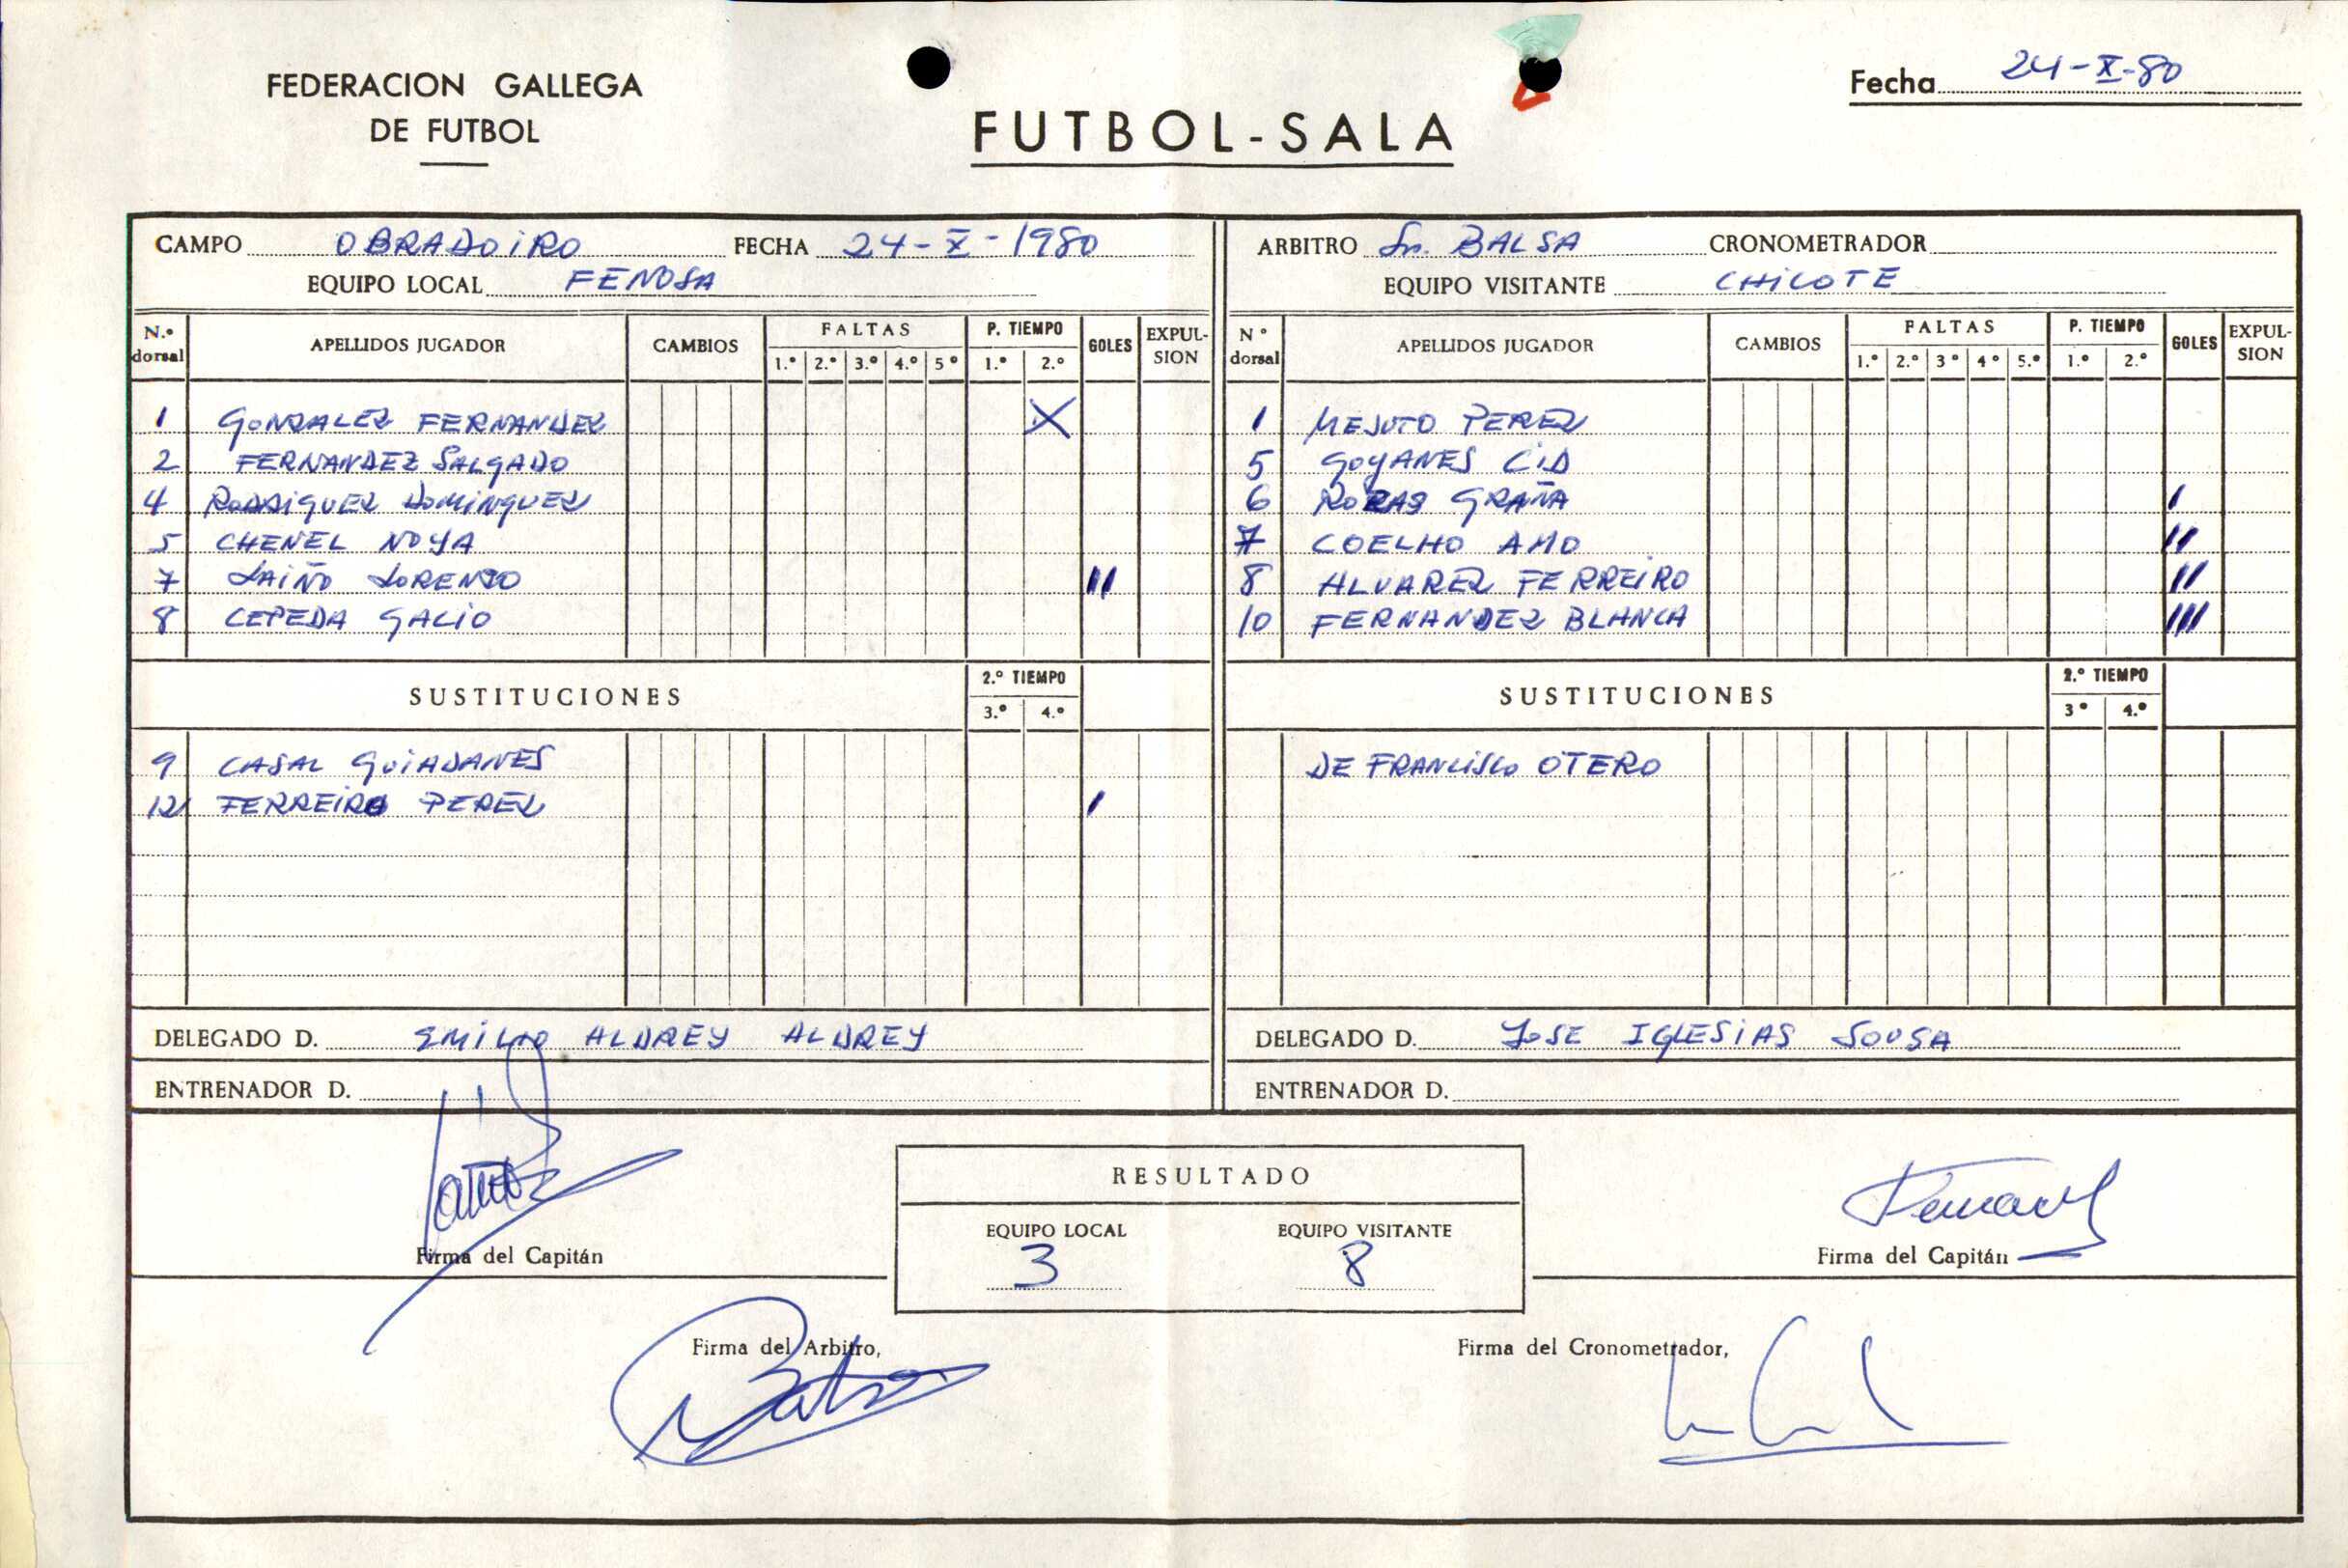 FEDERACION GALLEGA
DE FUTBOL
FUTBOL-SALA
Fecha 24-X-80
CAMPO OBRADOIRO FECHA 24-X-1980
EQUIPO LOCAL FENOSA
N.º dorsal APELLIDOS JUGADOR CAMBIOS FALTAS 1.º 2.º 3.º 4.º 5º P. TIEMPO 1.º 2.º GOLES EXPULSION
1 GONZALEZ FERNANDEZ X
2 FERNANDEZ SALGADO
4 RODRIGUEZ DOMINGUEZ
5 CHENEL NOYA
7 LAIÑO LORENZO II
8 CEPEDA GALIO
SUSTITUCIONES 2.º TIEMPO 3.º 4.º
9 CASAL GUIADANES
12 FERREIRO PEREZ I
DELEGADO D. EMILIO ALDREY ALDREY
ENTRENADOR D.
ARBITRO Sr. BALSA CRONOMETRADOR
EQUIPO VISITANTE CHICOTE
N º dorsal APELLIDOS JUGADOR CAMBIOS FALTAS 1.º 2.º 3º 4º 5.º P. TIEMPO 1.º 2.º GOLES EXPULSION
1 MEJUTO PEREZ
5 GOYANES CID
6 GRAÑA I
7 COELHO AMO II
8 ALVAREZ FERREIRO II
10 FERNANDEZ BLANCA III
SUSTITUCIONES 2.º TIEMPO 3º 4.º
DE FRANCISCO OTERO
DELEGADO D. JOSE IGLESIAS SOUSA
ENTRENADOR D.
RESULTADO
EQUIPO LOCAL EQUIPO VISITANTE
3 8
Firma del Capitán
Firma del Capitán
Firma del Arbitro,
Firma del Cronometrador,